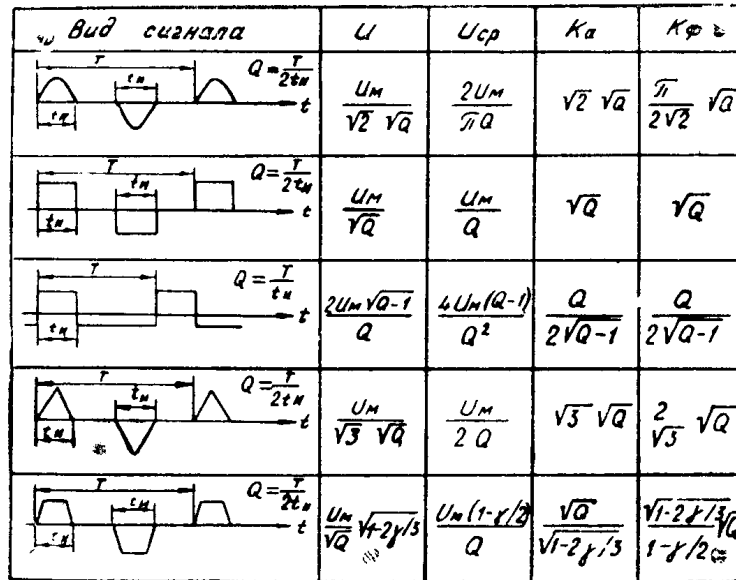 Вид сигнала U Uср Kа Kф
T tи Q = T/2tи tи t Uм/√2 √Q 2Uм/πQ √2 √Q π/2√2 √Q
T tи Q = T/2tи tи t Uм/√Q Uм/Q √Q √Q
T Q = T/tи tи t 2Uм√Q-1/Q 4Uм(Q-1)/Q² Q/2√Q-1 Q/2√Q-1
T tи Q = T/2tи tи t Uм/√3 √Q Uм/2Q √3 √Q 2/√3 √Q
T tи Q = T/2tи tи t Uм/√Q √1-2γ/3 Uм(1-γ/2)/Q √Q/√1-2γ/3 √1-2γ/3/1-γ/2 √Q